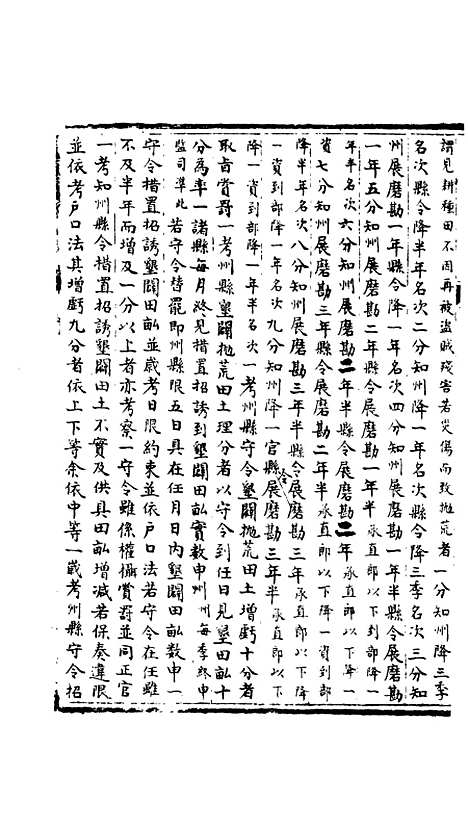 謂見耕種田不因再被盜賊殘害若災傷而致拋荒者一分知州降三季
名次縣令降半年名次二分知州降一年名次縣令降三季名次三分知
州展磨勘一年縣令降一年名次四分知州展磨勘一年半縣令展磨勘
一年五分知州展磨勘二年縣令展磨勘一年半承直郎以下降一
年半名次六分知州展磨勘二年半縣令展磨勘二年承直郎以下降一
資七分知州展磨勘三年縣令展磨勘二年半承直郎以下降一資到部
降半年名次八分知州展磨勘三年半縣令展磨勘三年承直郎以下降
一資到部降一年名次九分知州降一官縣令展磨勘三年半承直郎以下
降一資到部降一年半名次一考州縣守令墾闢拋荒田土增虧十分者
取旨賞罰一考州縣墾闢拋荒田土理分者以守令到任日見墾田畝十
分為率一諸縣每月終見措置招誘到墾闢田畝實數申州州每季終申
監司準此若守令替罷即州縣限五日具在任月日內墾闢田畝數申一
守令措置招誘墾闢田畝並歲考日限約束並依戶口法若守令在任雖
不及半年而增及一分以上者亦考察一守令雖係權攝賞罰並同正官
一考知州縣令措置招誘墾闢田土不實及供具田畝增減若保奏違限
並依考戶口法其增虧九分者依上下等餘依中等一歲考州縣守令招